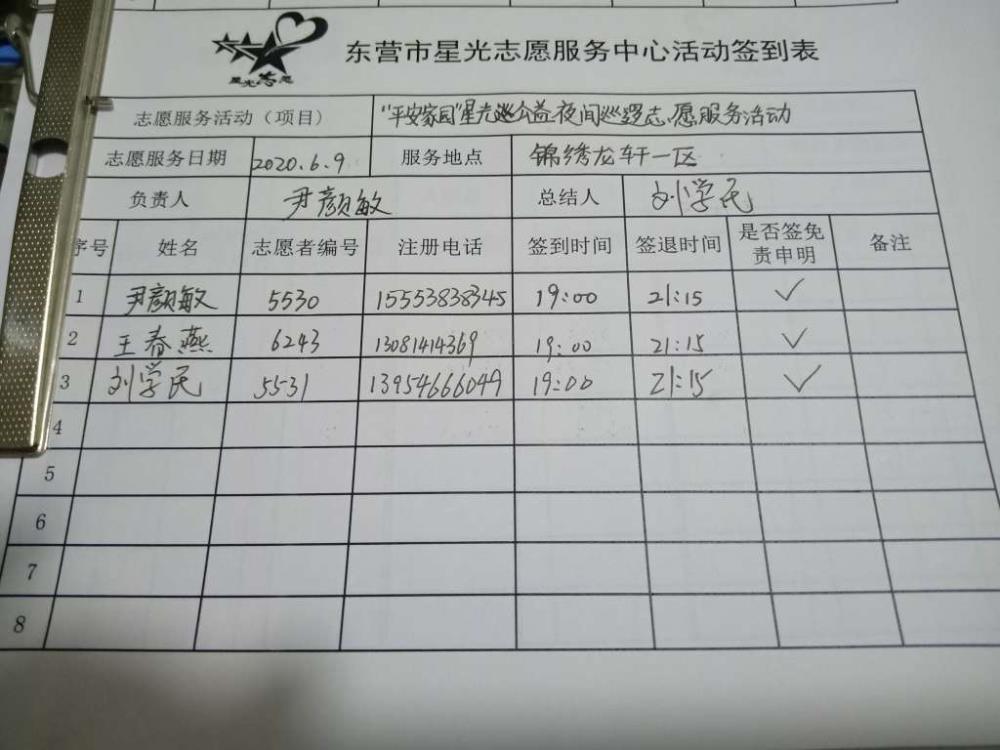 星光志愿
东营市星光志愿服务中心活动签到表
志愿服务活动（项目） "平安家园"星光巡公益夜间巡逻志愿服务活动
志愿服务日期 2020.6.9 服务地点 锦绣龙轩一区
负责人 尹颜敏 总结人 刘学民
序号 姓名 志愿者编号 注册电话 签到时间 签退时间 是否签免责申明 备注
1 尹颜敏 5530 15553838345 19:00 21:15 ✓
2 王春燕 6243 13081414369 19:00 21:15 ✓
3 刘学民 5531 13954666049 19:00 21:15 ✓
4
5
6
7
8